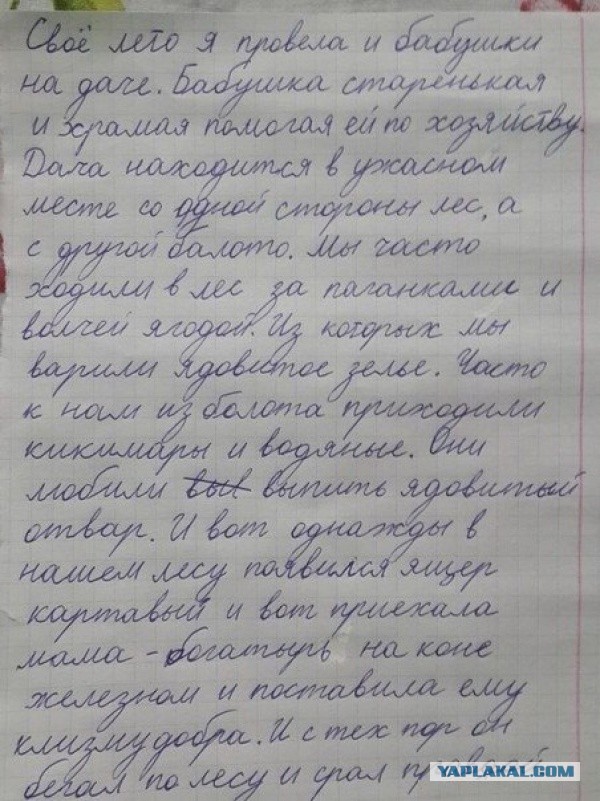 Своё лето я провела и бабушки
на даче. Бабушка старенькая
и храмая помогая ей по хозяйству.
Дача находится в ужасном
месте со одной стороны лес, а
с другой балото. Мы часто
ходили в лес за паганками и
волчей ягодой. Из которых мы
варили ядовитое зелье. Часто
к нам из болота приходили
кикимары и водяные. Они
любили вып выпить ядовитый
отвар. И вот однажды в
нашем лесу появился ящер
картавый и вот приехала
мама - богатырь на коне
железном и поставила ему
клизму добра. И с тех пор он
бегал по лесу и срал
YAPLAKAL.COM